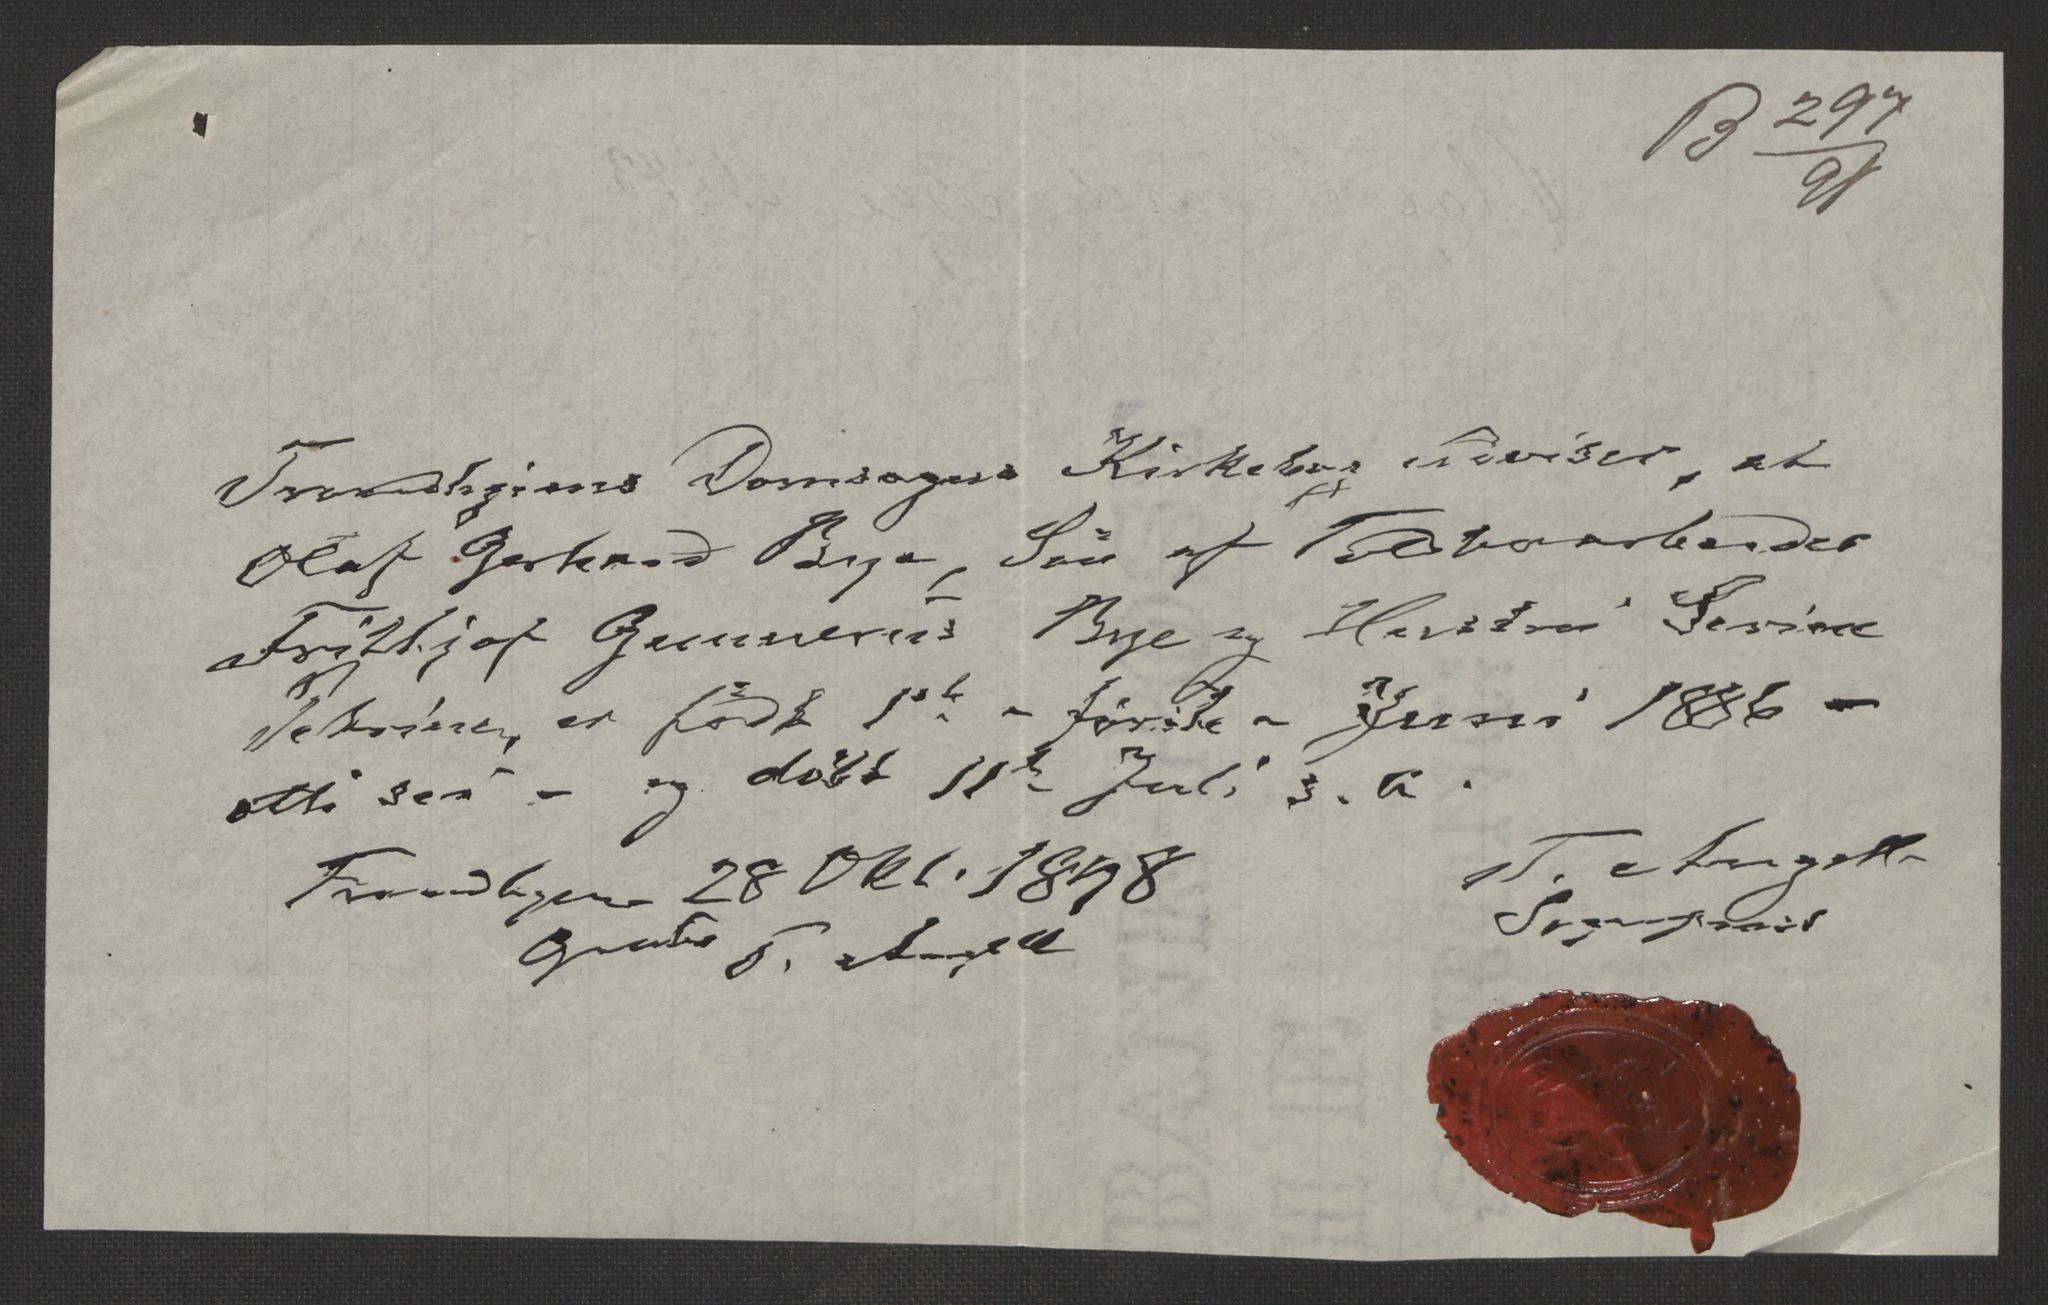 B 297/91
Trondhjems Domsogns Kirkebog udviser, at
Olaf Gerhard Bye, Sön af Toldbodarbeider
Frithjof Gunnerius Bye og Hustru Serine
Petrine, er födt 1ste - förste - Juni 1886 -
otti sex - og döbt 11te Juli s. A.
Trondhjem 28 Okt. 1898
Gratis T. Angell
T. Angell
Sognepræst